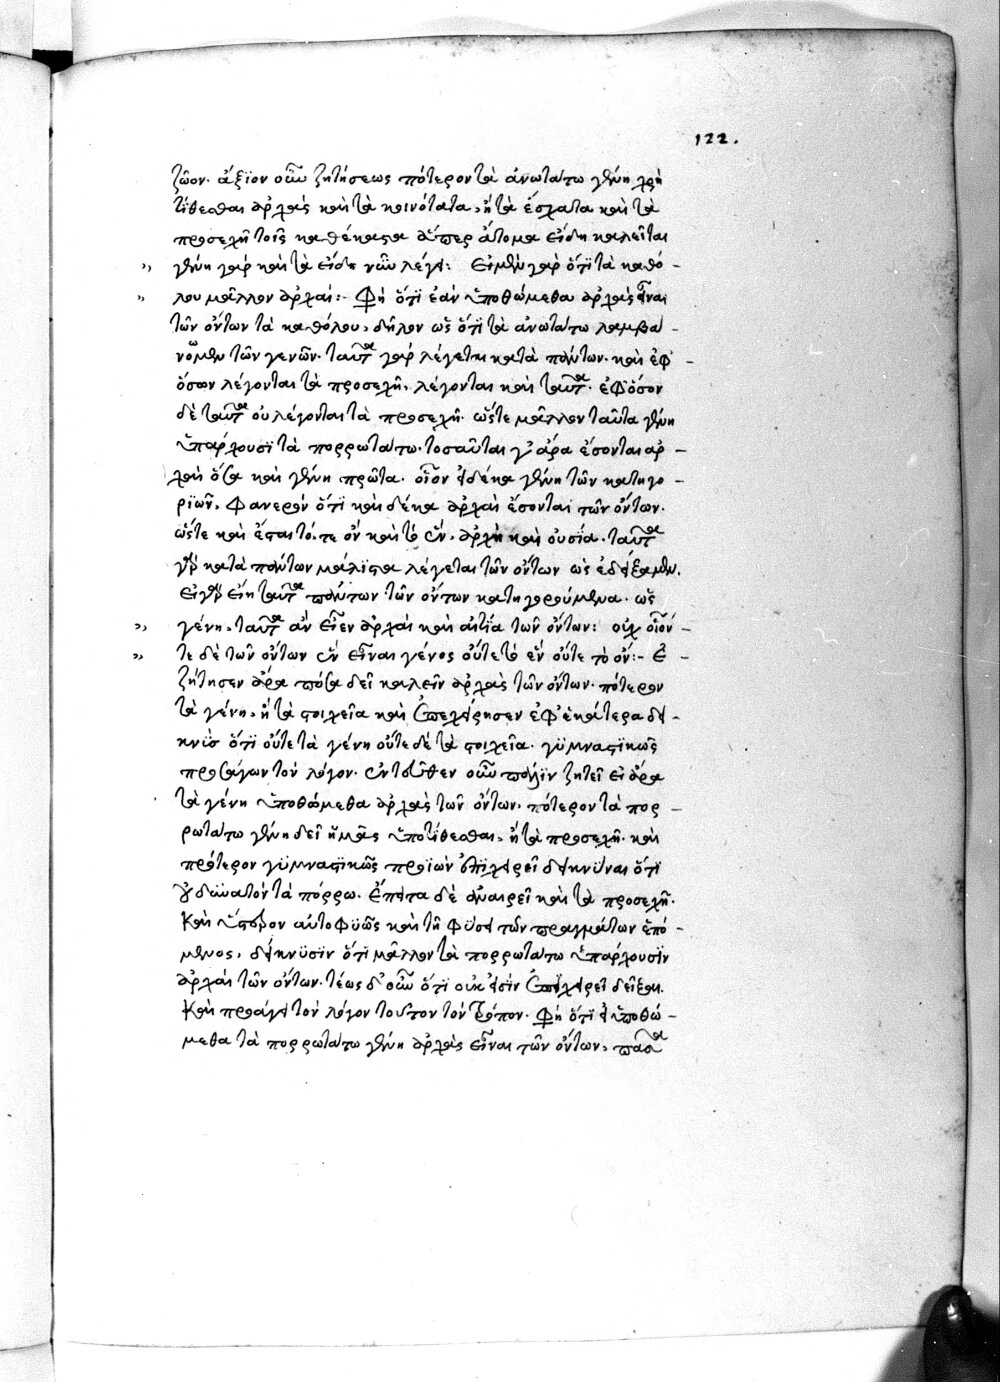 122.
ζῶον. ἄξϊον οὖν ζητήσεως πότερον τὰ ἀνωτάτω γένη χρὴ
τίθεσθαι ἀρχὰς καὶ τὰ κοινότατα, ἢ τὰ ἔσχατα καὶ τὰ
προσεχῆ τοῖς καθέκαστα ἅπερ ἄτομα εἴδη καλεῖται
γένη γὰρ καὶ τὰ εἴδη νῦν λέγει: Εἰ μὲν γὰρ ὅτι τὰ καθό-
λου μᾶλλον ἀρχαί:- Φησὶ ὅτι ἐὰν ὑποθώμεθα ἀρχὰς εἶναι
τῶν ὄντων τὰ καθόλου, δῆλον ὡς ὅτι τὰ ἀνωτάτω λαμβα-
νόμενα τῶν γενῶν. ταῦτα γὰρ λέγεται κατὰ πάντων. καὶ ἐφ'-
ὅσων λέγονται τὰ προσεχῆ, λέγονται καὶ ταῦτα. ἐφ' ὅσον
δὲ ταῦτα οὐ λέγονται τὰ προσεχῆ. ὥστε μᾶλλον ταῦτα γένη
ὑπάρχουσϊ τὰ πορρωτάτω. τοσαῦται γὰρ ἄρα ἔσονται ἀρ-
χαὶ ὅσα καὶ γένη πρῶτα. οἷον εἰ δέκα γένη τῶν κατηγο-
ριῶν, φανερὸν ὅτϊ καὶ δέκα ἀρχαὶ ἔσονται τῶν ὄντων.
ὥστε καὶ ἔσται τό, τε ὂν καὶ τὸ ἕν, ἀρχὴ καὶ οὐσία. ταῦτα
γὰρ κατὰ πάντων μάλιστα λέγεται τῶν ὄντων ὡς ἐδείξαμεν.
εἰ γὰρ εἴη ταῦτα πάντων τῶν ὄντων κατηγορούμενα. ὡς
γένη, ταῦτα ἂν εἶεν ἀρχαὶ καὶ αἰτία τῶν ὄντων: οὐχ οἷόν-
τε δὲ τῶν ὄντων ἓν εἶναι γένος οὔτε τὸ ἓν οὔτε τὸ ὄν:- Ἐ-
ζήτησεν ἄρα πόσα δεῖ καλεῖν ἀρχὰς τῶν ὄντων. πότερον
τὰ γένη, ἢ τὰ στοιχεῖα καὶ ἐπεχείρησεν ἐφ' ἑκάτερα δει-
κνὺς ὅτϊ οὔτε τὰ γένη οὔτε δὲ τὰ στοιχεῖα. γϋμναστϊκῶς
προσάγων τὸν λόγον. ἐντεῦθεν οὖν πάλϊν ζητεῖ εἰ ἄρα
τὰ γένη ὑποθώμεθα ἀρχὰς τῶν ὄντων, πότερον τὰ πορ-
ρωτάτω γένη δεῖ ἡμᾶς ὑποτίθεσθαι, ἢ τὰ προσεχῆ. καὶ
πρότερον γϋμναστϊκῶς προϊὼν ἐπϊχειρεῖ δεικνῦναι ὅτϊ
οὐ δϋνατὸν τὰ πόρρω. ἔπειτα δὲ ἀναιρεῖ καὶ τὰ προσεχῆ.
Καὶ ὕστερον αὐτοφϋῶς καὶ τῇ φϋσει τῶν πραγμάτων ἑπό-
μενος, δείκνϋσϊν ὅτϊ μᾶλλον τὰ πορρωτάτω ὑπάρχουσϊν
ἀρχαὶ τῶν ὄντων. τέως δ' οὖν ὅτϊ οὐκ εἰσὶν ἐπιχειρεῖ δεῖξαι.
Καὶ προάγει τὸν λόγον τοῦτον τὸν τρόπον. Φησὶ ὅτϊ εἰ ὑποθώ-
μεθα τὰ πορρωτάτω γένη ἀρχὰς εἶναι τῶν ὄντων, πᾶσα